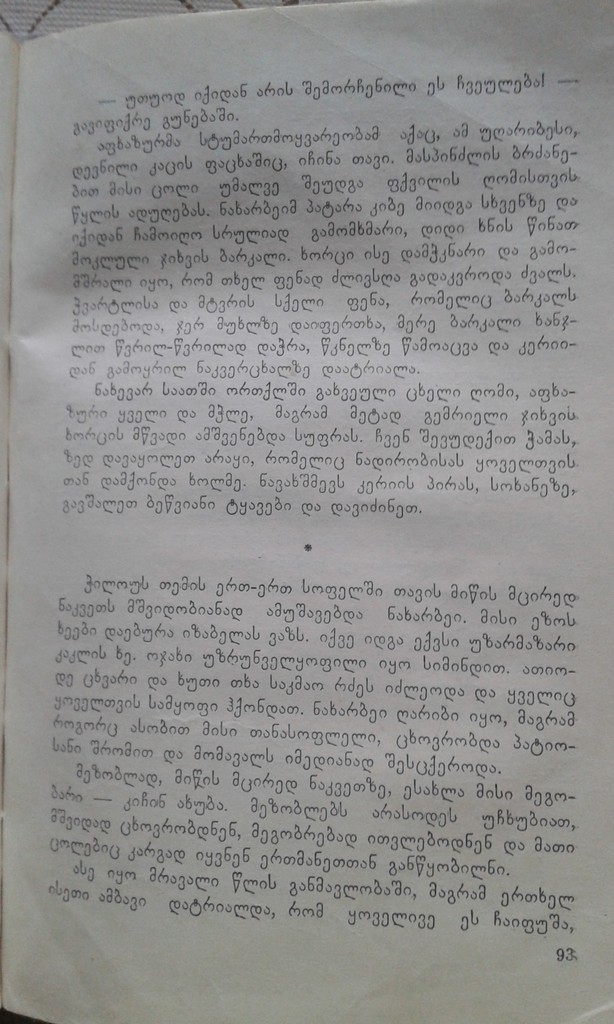 — უთუოდ იქიდან არის შემორჩენილი ეს ჩვეულება! —
გავიფიქრე გუნებაში.
აფხაზურმა სტუმართმოყვარეობამ აქაც, ამ უღარიბესი,
დევნილი კაცის ფაცხაშიც, იჩინა თავი. მასპინძლის ბრძანე-
ბით მისი ცოლი უმალვე შეუდგა ფქვილის ღომისთვის
წყლის ადუღებას. ნახარბეიმ პატარა კიბე მიიდგა სხვენზე და
იქიდან ჩამოიღო სრულიად გამომხმარი, დიდი ხნის წინათ
მოკლული ჯიხვის ბარკალი. ხორცი ისე დამჭკნარი და გამო-
მშრალი იყო, რომ თხელ ფენად ძლივსღა გადაკვროდა ძვალს.
ჭვარტლისა და მტვრის სქელი ფენა, რომელიც ბარკალს
მოსდებოდა, ჯერ მუხლზე დაიფერთხა, მერე ბარკალი ხანჯ-
ლით წვრილ-წვრილად დაჭრა, წკნელზე წამოაცვა და კერიი-
დან გამოყრილ ნაკვერცხალზე დაატრიალა.
ნახევარ საათში ორთქლში გახვეული ცხელი ღომი, აფხა-
ზური ყველი და მჭლე, მაგრამ მეტად გემრიელი ჯიხვის
ხორცის მწვადი ამშვენებდა სუფრას. ჩვენ შევუდექით ჭამას,
ზედ დავაყოლეთ არაყი, რომელიც ნადირობისას ყოველთვის
თან დამქონდა ხოლმე. ნავახშმევს კერიის პირას, სოხანეზე,
გავშალეთ ბეწვიანი ტყავები და დავიძინეთ.
*
ჭილოუს თემის ერთ-ერთ სოფელში თავის მიწის მცირედ
ნაკვეთს მშვიდობიანად ამუშავებდა ნახარბეი. მისი ეზოს
ხეები დაებურა იზაბელას ვაზს. იქვე იდგა ექვსი უზარმაზარი
კაკლის ხე. ოჯახი უზრუნველყოფილი იყო სიმინდით. ათიო-
დე ცხვარი და ხუთი თხა საკმაო რძეს იძლეოდა და ყველიც
ყოველთვის სამყოფი ჰქონდათ. ნახარბეი ღარიბი იყო, მაგრამ
როგორც ასობით მისი თანასოფლელი, ცხოვრობდა პატიო-
სანი შრომით და მომავალს იმედიანად შესცქეროდა.
მეზობლად, მიწის მცირედ ნაკვეთზე, ესახლა მისი მეგო-
ბარი — კიჩინ ახუბა. მეზობლებს არასოდეს უჩხუბიათ,
მშვიდად ცხოვრობდნენ, მეგობრებად ითვლებოდნენ და მათი
ცოლებიც კარგად იყვნენ ერთმანეთთან განწყობილნი.
ასე იყო მრავალი წლის განმავლობაში, მაგრამ ერთხელ
ისეთი ამბავი დატრიალდა, რომ ყოველივე ეს ჩაიფუშა,
93